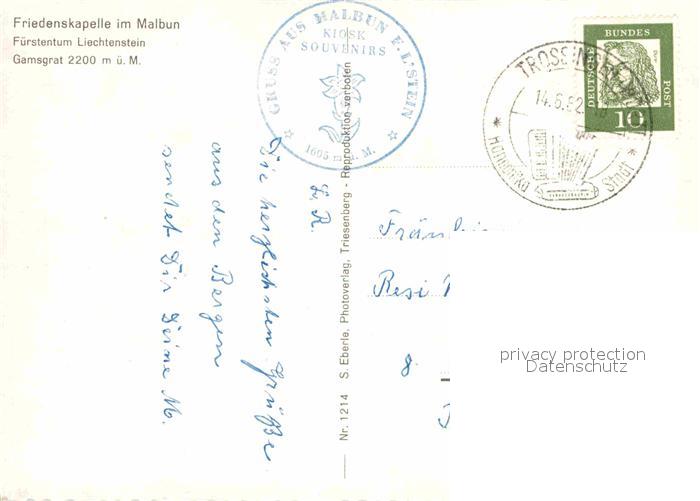 Friedenskapelle im Malbun
Fürstentum Liechtenstein
Gamsgrat 2200 m ü. M.
GRUSS AUS MALBUN F. L'STEIN
KIOSK
SOUVENIRS
1605 m ü. M.
TROSSINGEN
14.6.62
Harmonika Stadt
DEUTSCHE BUNDES POST
10
L. R.
Die herzlichsten Grüße
aus den Bergen
sendet Dir Deine M.
Nr. 1214 S. Eberle, Photoverlag, Triesenberg - Reproduktion verboten
Resi
8
privacy protection
Datenschutz